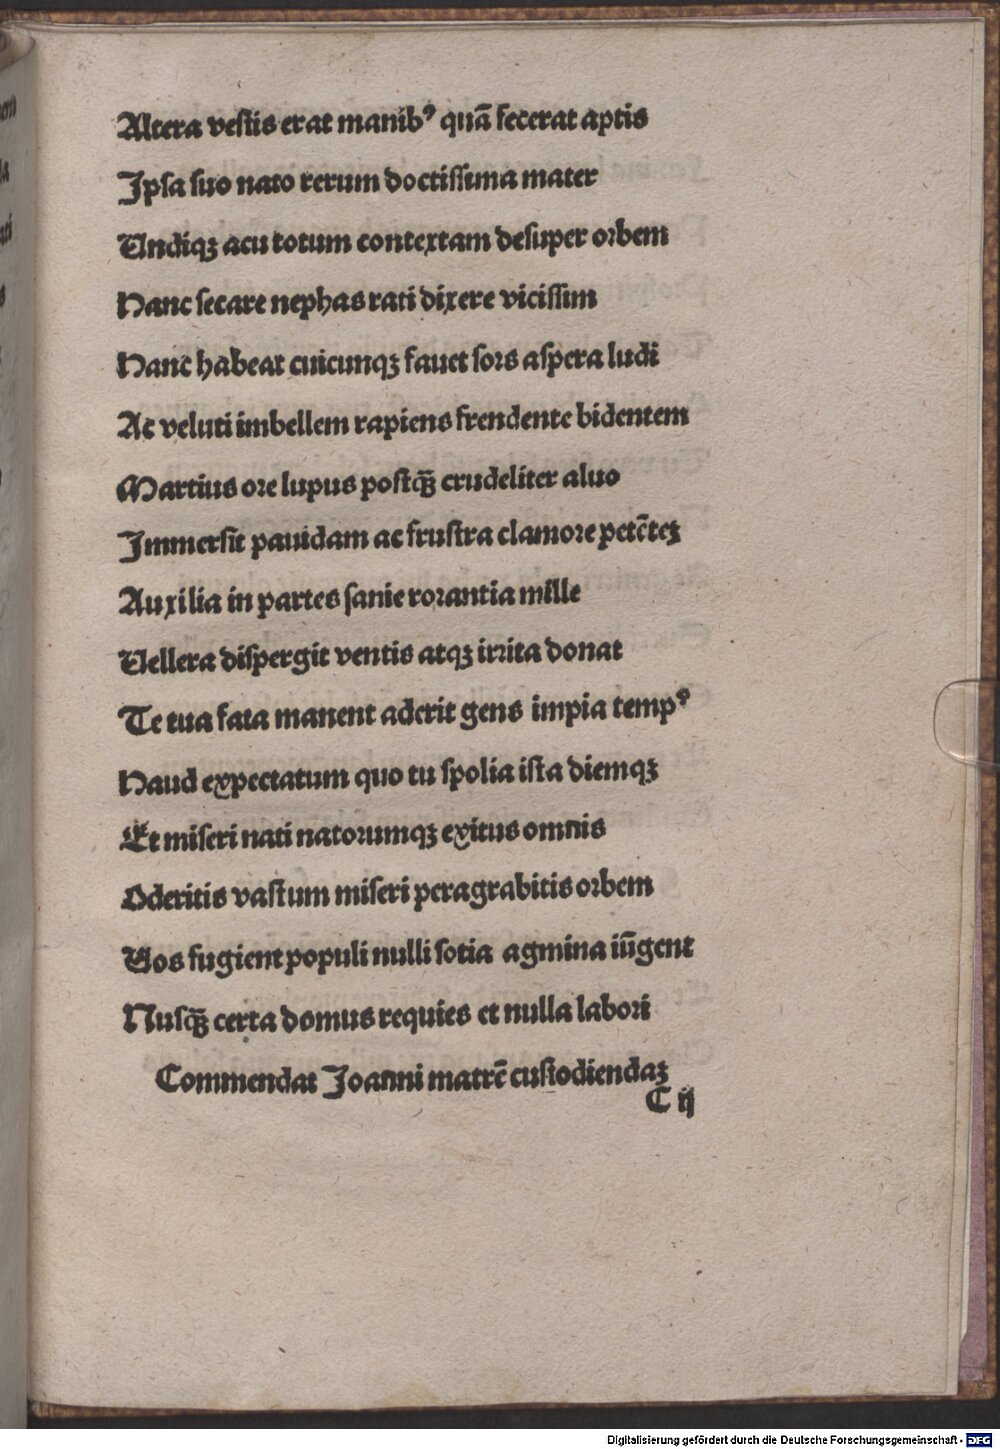 Altera veſtis erat manibꝰ quā fecerat aptis
Ipſa ſuo nato rerum doctiſſima mater
Undiqꝫ acu totum contextam deſuper orbem
Hanc ſecare nephas rati dixere viciſſim
Hanc habeat cuicunqꝫ fauet ſors aſpera ludi
Ac veluti imbellem rapiens frendente bidentem
Martius ore lupus poſtqꝫ̄ crudeliter aluo
Immerſit pauidam ac fruſtra clamore petēteꝫ
Auxilia in partes ſanie rorantia mille
Vellera diſpergit ventis atqꝫ irrita donat
Te tua fata manent aderit gens impia tempꝰ
Haud expectatum quo tu ſpolia iſta diemqꝫ
Et miſeri nati natorumqꝫ exitus omnis
Oderitis vaſtum miſeri peragrabitis orbem
Vos fugient populi nulli ſotia agmina iūgent
Nuſqꝫ̄ certa domus requies et nulla labori
Commendat Joanni matrē cuſtodiendaꝫ
C ij
Digitalisierung gefördert durch die Deutsche Forschungsgemeinschaft - DFG